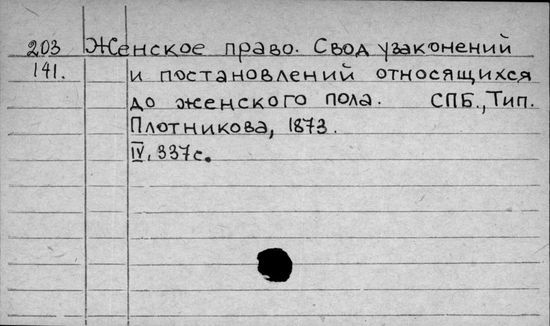 203 Женское право. Свод узаконений
141. и постановлений относящихся
до женского пола. СПБ., Тип.
Плотникова, 1873.
IV, 337с.